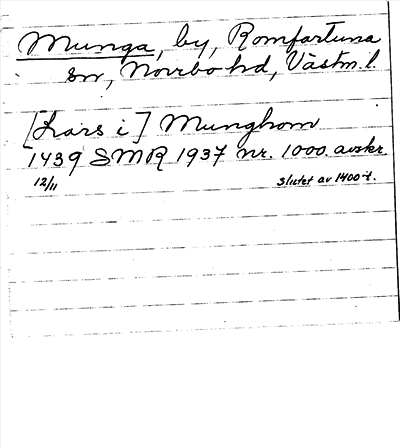 Munga, by, Romfartuna
sn, Norrbo hd, Västm. l.
[Lars i] Munghom
1439 SMR 1937 nr. 1000. avskr.
12/11 slutet av 1400-t.